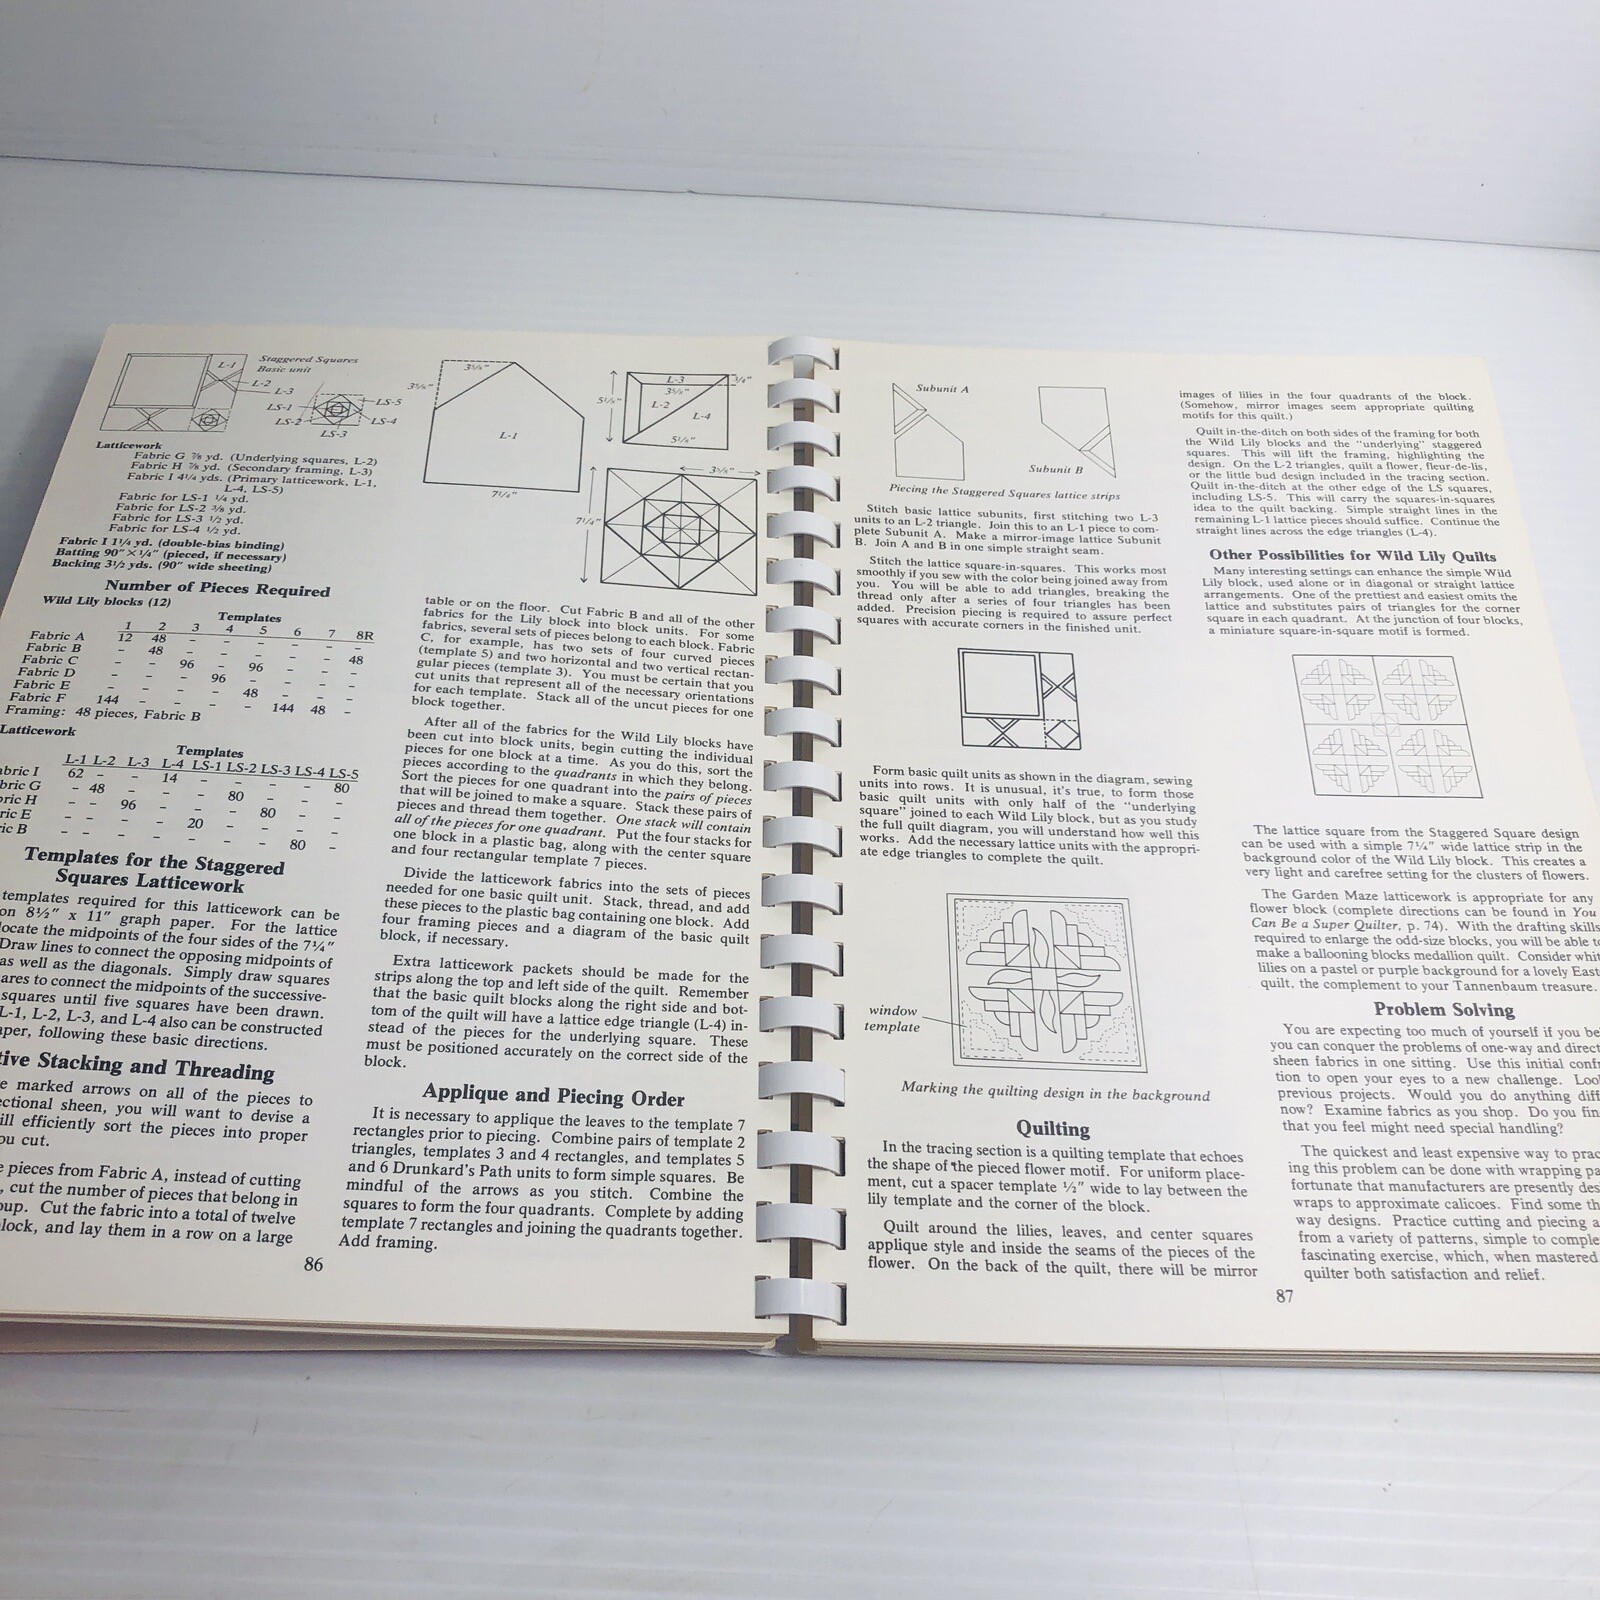 Staggered Squares
Basic unit
L-1
L-2
L-3
LS-1
LS-2
LS-3
LS-4
LS-5
Latticework
Fabric G 7/8 yd. (Underlying squares, L-2)
Fabric H 7/8 yd. (Secondary framing, L-3)
Fabric I 4 1/4 yds. (Primary latticework, L-1,
L-4, LS-5)
Fabric for LS-1 1/4 yd.
Fabric for LS-2 3/8 yd.
Fabric for LS-3 1/2 yd.
Fabric for LS-4 1/2 yd.
Fabric I 1 1/4 yd. (double-bias binding)
Batting 90" × 1/4" (pieced, if necessary)
Backing 3 1/2 yds. (90" wide sheeting)
Number of Pieces Required
Wild Lily blocks (12)
Templates
1 2 3 4 5 6 7 8R
Fabric A 12 48 – – – – – –
Fabric B – 48 – – – – – 48
Fabric C – – 96 – 96 – – –
Fabric D – – – 96 – – – –
Fabric E – – – – 48 – – –
Fabric F 144 – – – – 144 48 –
Framing: 48 pieces, Fabric B
Latticework
Templates
L-1 L-2 L-3 L-4 LS-1 LS-2 LS-3 LS-4 LS-5
abric I 62 – – 14 – – – – 80
bric G – 48 – – – 80 – – –
bric H – – 96 – – – 80 – –
ric E – – – – 20 – – – –
ic B – – – – – – – 80 –
Templates for the Staggered
Squares Latticework
templates required for this latticework can be
on 8½" x 11" graph paper. For the lattice
locate the midpoints of the four sides of the 7¼"
Draw lines to connect the opposing midpoints of
as well as the diagonals. Simply draw squares
ares to connect the midpoints of the successive-
squares until five squares have been drawn.
L-1, L-2, L-3, and L-4 also can be constructed
aper, following these basic directions.
tive Stacking and Threading
e marked arrows on all of the pieces to
ectional sheen, you will want to devise a
ill efficiently sort the pieces into proper
ou cut.
e pieces from Fabric A, instead of cutting
, cut the number of pieces that belong in
oup. Cut the fabric into a total of twelve
lock, and lay them in a row on a large
86
3 5/8"
3 5/8"
L-1
7 1/4"
L-3
3/4"
3 5/8"
L-2
L-4
5 1/8"
5 1/8"
3 5/8"
7 1/4"
table or on the floor. Cut Fabric B and all of the other
fabrics for the Lily block into block units. For some
fabrics, several sets of pieces belong to each block. Fabric
C, for example, has two sets of four curved pieces
(template 5) and two horizontal and two vertical rectan-
gular pieces (template 3). You must be certain that you
cut units that represent all of the necessary orientations
for each template. Stack all of the uncut pieces for one
block together.
After all of the fabrics for the Wild Lily blocks have
been cut into block units, begin cutting the individual
pieces for one block at a time. As you do this, sort the
pieces according to the quadrants in which they belong.
Sort the pieces for one quadrant into the pairs of pieces
that will be joined to make a square. Stack these pairs of
pieces and thread them together. One stack will contain
all of the pieces for one quadrant. Put the four stacks for
one block in a plastic bag, along with the center square
and four rectangular template 7 pieces.
Divide the latticework fabrics into the sets of pieces
needed for one basic quilt unit. Stack, thread, and add
these pieces to the plastic bag containing one block. Add
four framing pieces and a diagram of the basic quilt
block, if necessary.
Extra latticework packets should be made for the
strips along the top and left side of the quilt. Remember
that the basic quilt blocks along the right side and bot-
tom of the quilt will have a lattice edge triangle (L-4) in-
stead of the pieces for the underlying square. These
must be positioned accurately on the correct side of the
block.
Applique and Piecing Order
It is necessary to applique the leaves to the template 7
rectangles prior to piecing. Combine pairs of template 2
triangles, templates 3 and 4 rectangles, and templates 5
and 6 Drunkard's Path units to form simple squares. Be
mindful of the arrows as you stitch. Combine the
squares to form the four quadrants. Complete by adding
template 7 rectangles and joining the quadrants together.
Add framing.
Subunit A
Subunit B
Piecing the Staggered Squares lattice strips
Stitch basic lattice subunits, first stitching two L-3
units to an L-2 triangle. Join this to an L-1 piece to com-
plete Subunit A. Make a mirror-image lattice Subunit
B. Join A and B in one simple straight seam.
Stitch the lattice square-in-squares. This works most
smoothly if you sew with the color being joined away from
you. You will be able to add triangles, breaking the
thread only after a series of four triangles has been
added. Precision piecing is required to assure perfect
squares with accurate corners in the finished unit.
Form basic quilt units as shown in the diagram, sewing
units into rows. It is unusual, it's true, to form those
basic quilt units with only half of the "underlying
square" joined to each Wild Lily block, but as you study
the full quilt diagram, you will understand how well this
works. Add the necessary lattice units with the appropri-
ate edge triangles to complete the quilt.
window
template
Marking the quilting design in the background
Quilting
In the tracing section is a quilting template that echoes
the shape of the pieced flower motif. For uniform place-
ment, cut a spacer template ½" wide to lay between the
lily template and the corner of the block.
Quilt around the lilies, leaves, and center squares
applique style and inside the seams of the pieces of the
flower. On the back of the quilt, there will be mirror
images of lilies in the four quadrants of the block.
(Somehow, mirror images seem appropriate quilting
motifs for this quilt.)
Quilt in-the-ditch on both sides of the framing for both
the Wild Lily blocks and the "underlying" staggered
squares. This will lift the framing, highlighting the
design. On the L-2 triangles, quilt a flower, fleur-de-lis,
or the little bud design included in the tracing section.
Quilt in-the-ditch at the other edge of the LS squares,
including LS-5. This will carry the squares-in-squares
idea to the quilt backing. Simple straight lines in the
remaining L-1 lattice pieces should suffice. Continue the
straight lines across the edge triangles (L-4).
Other Possibilities for Wild Lily Quilts
Many interesting settings can enhance the simple Wild
Lily block, used alone or in diagonal or straight lattice
arrangements. One of the prettiest and easiest omits the
lattice and substitutes pairs of triangles for the corner
square in each quadrant. At the junction of four blocks,
a miniature square-in-square motif is formed.
The lattice square from the Staggered Square design
can be used with a simple 7¼" wide lattice strip in the
background color of the Wild Lily block. This creates a
very light and carefree setting for the clusters of flowers.
The Garden Maze latticework is appropriate for any
flower block (complete directions can be found in You
Can Be a Super Quilter, p. 74). With the drafting skills
required to enlarge the odd-size blocks, you will be able to
make a ballooning blocks medallion quilt. Consider whit
lilies on a pastel or purple background for a lovely East
quilt, the complement to your Tannenbaum treasure.
Problem Solving
You are expecting too much of yourself if you be
you can conquer the problems of one-way and direct
sheen fabrics in one sitting. Use this initial confr
tion to open your eyes to a new challenge. Loo
previous projects. Would you do anything diff
now? Examine fabrics as you shop. Do you fin
that you feel might need special handling?
The quickest and least expensive way to prac
ing this problem can be done with wrapping pa
fortunate that manufacturers are presently desi
wraps to approximate calicoes. Find some th
way designs. Practice cutting and piecing a
from a variety of patterns, simple to comple
fascinating exercise, which, when mastered
quilter both satisfaction and relief.
87